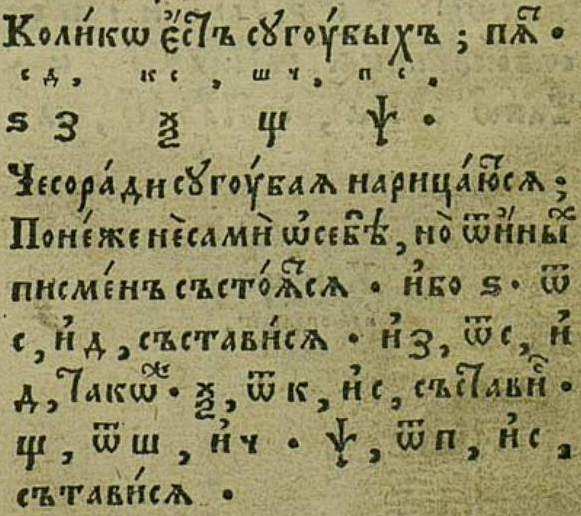 Коли́кѡ є҆́стъ сꙋгоу́быхъ ; пѧ҃т .
сд, кс, шч, пс.
ѕ ꙁ ѯ щ ѱ .
Чесора́ди сꙋгоу́баѧ нарица́ютсѧ ;
Поне́же нѐсамѝ ѡ҆себѣ̀, но̀ ѿи҆ны́х
писме́нъ състоѧ́тсѧ . и҆́бо ѕ . ѿ
с, и҆ д, състави́сѧ . и҆ ꙁ, ѿс, и҆
д, ꙗкѡж . ѯ, ѿ к, и҆с, състави́с .
щ, ѿ ш, и҆ч . ѱ, ѿ п, и҆с,
сътави́сѧ .